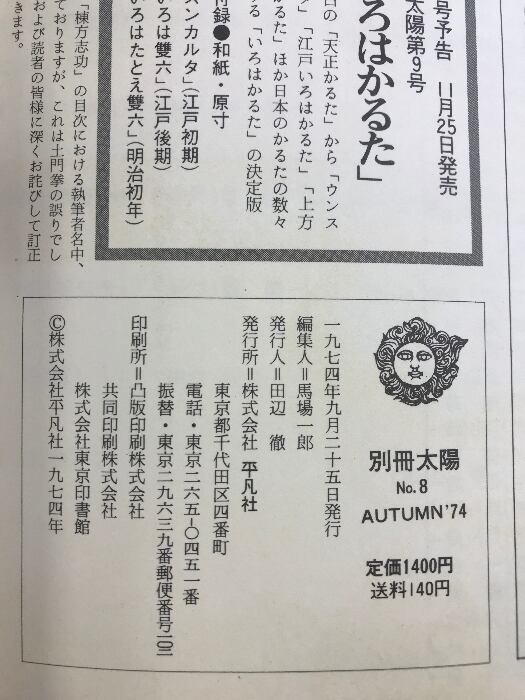 号予告 11月25日発売
太陽第9号
ろはかるた」
日の「天正かるた」から「ウンス
タ」「江戸いろはかるた」「上方
かるた」ほか日本のかるたの数々
る「いろはかるた」の決定版
付録●和紙・原寸
スンカルタ」(江戸初期)
いろは雙六」(江戸後期)
いろはたとえ雙六」(明治初年)
「棟方志功」の目次における執筆者名中、
ておりますが、これは土門拳の誤りでし
および読者の皆様に深くお詫びして訂正
きます。
別冊太陽
No.8
AUTUMN'74
定価1400円
送料140円
一九七四年九月二十五日発行
編集人＝馬場一郎
発行人＝田辺 徹
発行所＝株式会社 平凡社
東京都千代田区四番町
電話・東京二六五-〇四五一番
振替・東京二九六三九番郵便番号一〇二
印刷所＝凸版印刷株式会社
共同印刷株式会社
株式会社東京印書館
©株式会社平凡社一九七四年